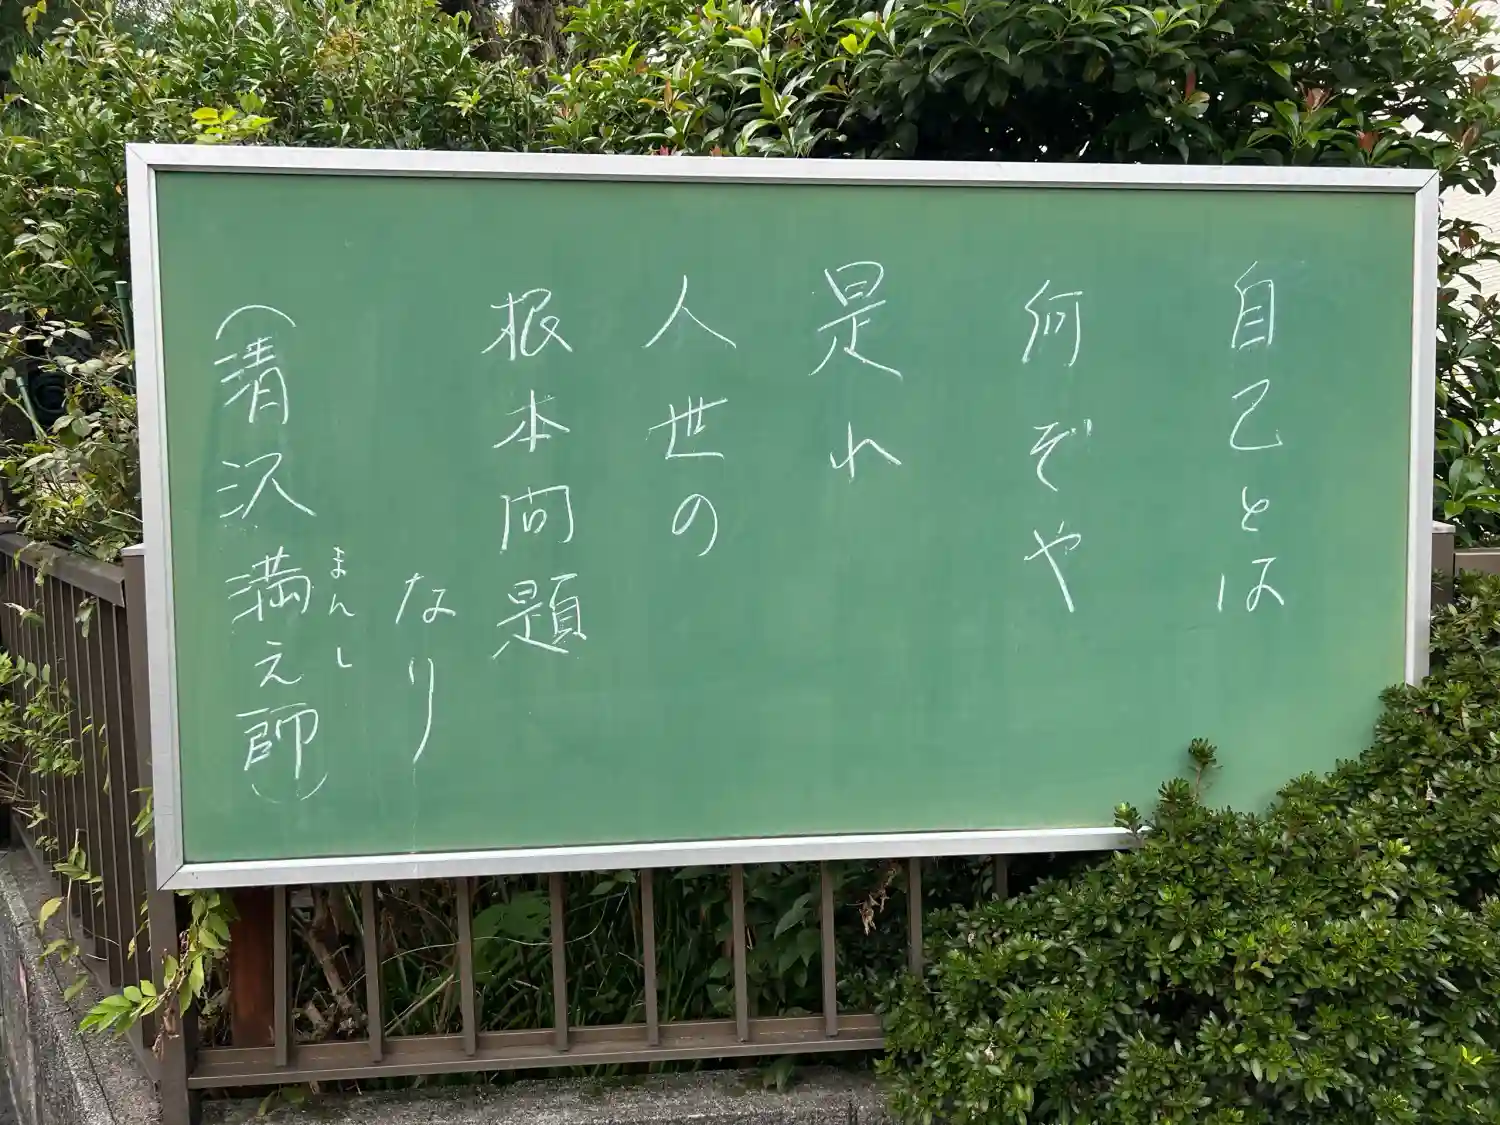 自己とは
何ぞや
是れ
人世の
根本問題
なり
（清沢満え師）
まんし